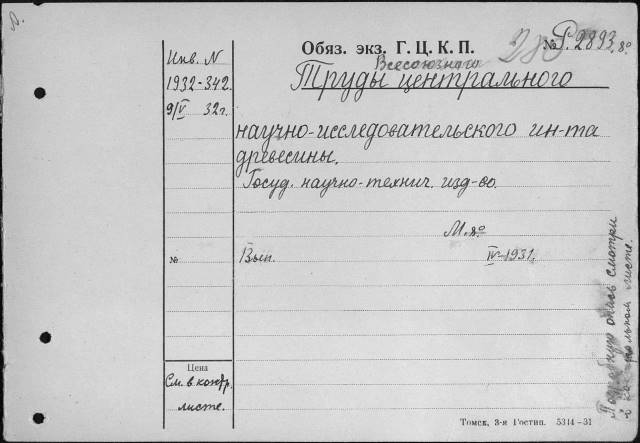 Инв. N
1932-342.
9/V 32 г.
Обяз. экз. Г. Ц. К. П.
№ Р. 2893, 8°
Всесоюзного
Труды центрального
научно-исследовательского ин-та
древесины.
Госуд. научно-технич. изд-во.
М. 8°
№
Вып.
IV-1931.
Цена
См. в контр.
листе.
Подробную опись смотри
в контрольном листе.
Томск, 3-я Гостип. 5314-31